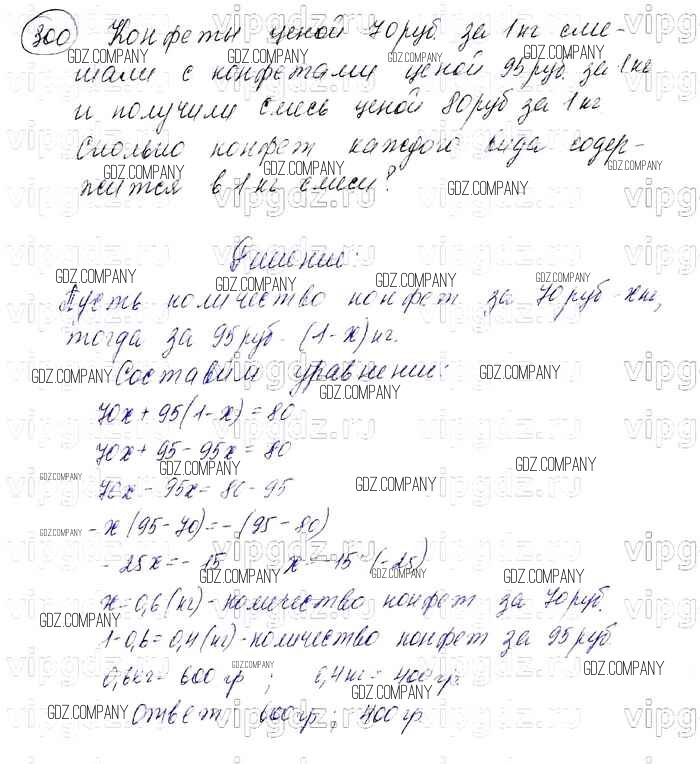 300 Конфеты ценой 70 руб. за 1 кг сме-
шали с конфетами ценой 95 руб. за 1 кг
и получили смесь ценой 80 руб за 1 кг.
Сколько конфет каждого вида содер-
жится в 1 кг смеси?
Решение:
Пусть количество конфет за 70 руб - x кг,
тогда за 95 руб - (1-x) кг.
Составим уравнение:
70x + 95(1-x) = 80
70x + 95 - 95x = 80
70x - 95x = 80 - 95
- x (95 - 70) = - (95 - 80)
- 25x = - 15 x = -15 : (-25)
x = 0,6 (кг) - количество конфет за 70 руб.
1 - 0,6 = 0,4 (кг) - количество конфет за 95 руб
0,6 кг = 600 гр ; 0,4 кг = 400 гр.
Ответ: 600 гр ; 400 гр
GDZ.COMPANY
vipgdz.ru